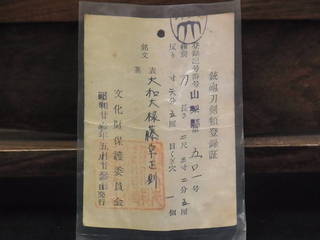 銃砲刀剣類登録証
登録記号番号 山梨県 第 五〇一号
種別 刀 長さ 二尺 三寸 二分 五厘
反り 寸 六分 五厘 目くぎ穴 一個
銘文 表 大和大掾藤原正則
裏
文化財保護委員会
昭和廿 年五月廿 日発行